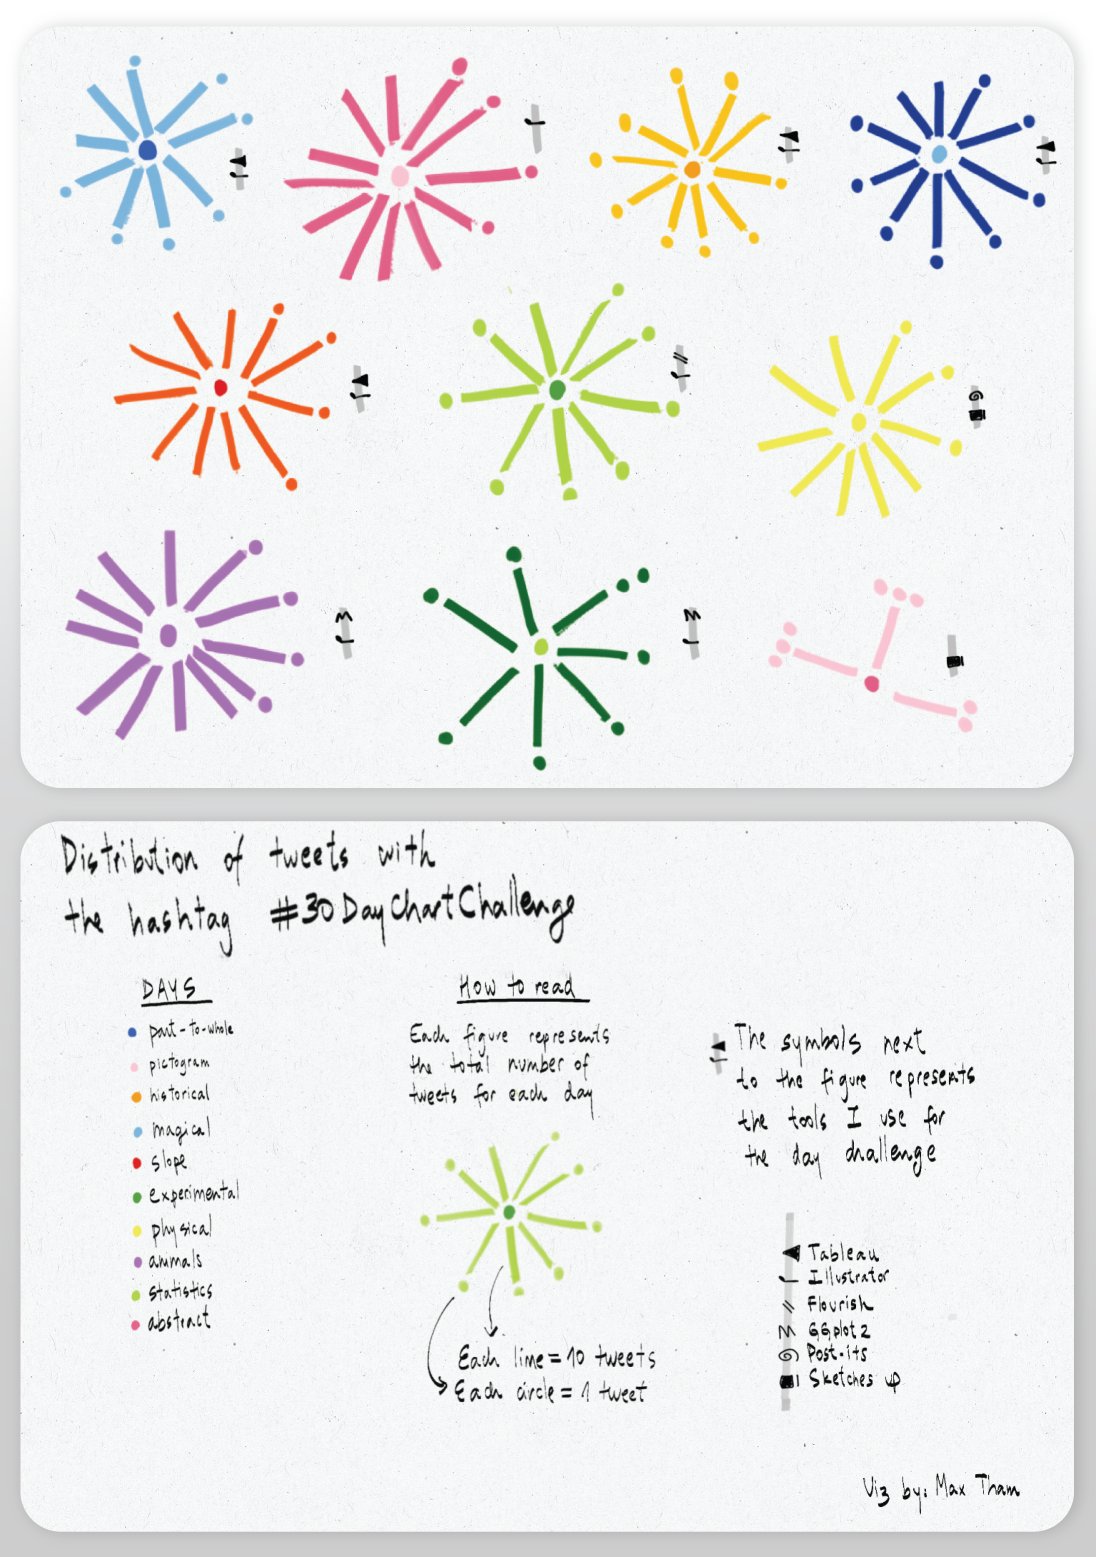 Distribution of tweets with
the hashtag #30DayChartChallenge
DAYS
part-to-whole
pictogram
historical
magical
slope
experimental
physical
animals
statistics
abstract
How to read
Each figure represents
the total number of
tweets for each day
Each line = 10 tweets
Each circle = 1 tweet
The symbols next
to the figure represents
the tools I use for
the day challenge
Tableau
Illustrator
Flourish
GGplot2
Post-its
Sketches up
Viz by: Max Tham